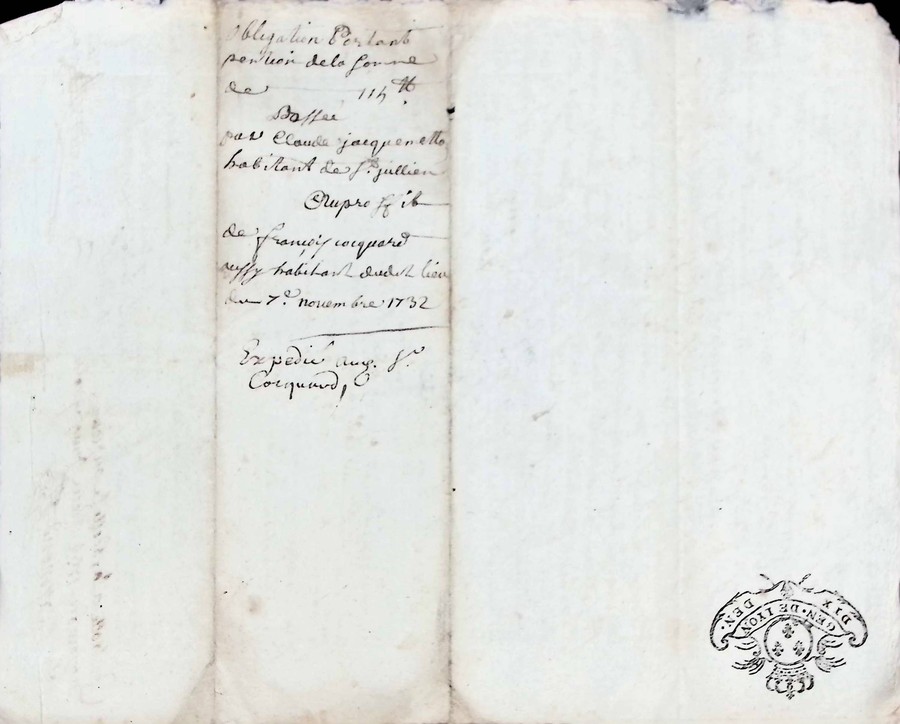 Obligation Portant
pention dela somme
de 114 ₶
Passée
par Claude jacquemetto
habitant de St. jullien
Au profit
de françois cocquard
aussy habitant dudit lieu
du 7e. novembre 1732
Expedié aud. Sr.
Cocquard,
DIX DEN.
GEN. DE LYON